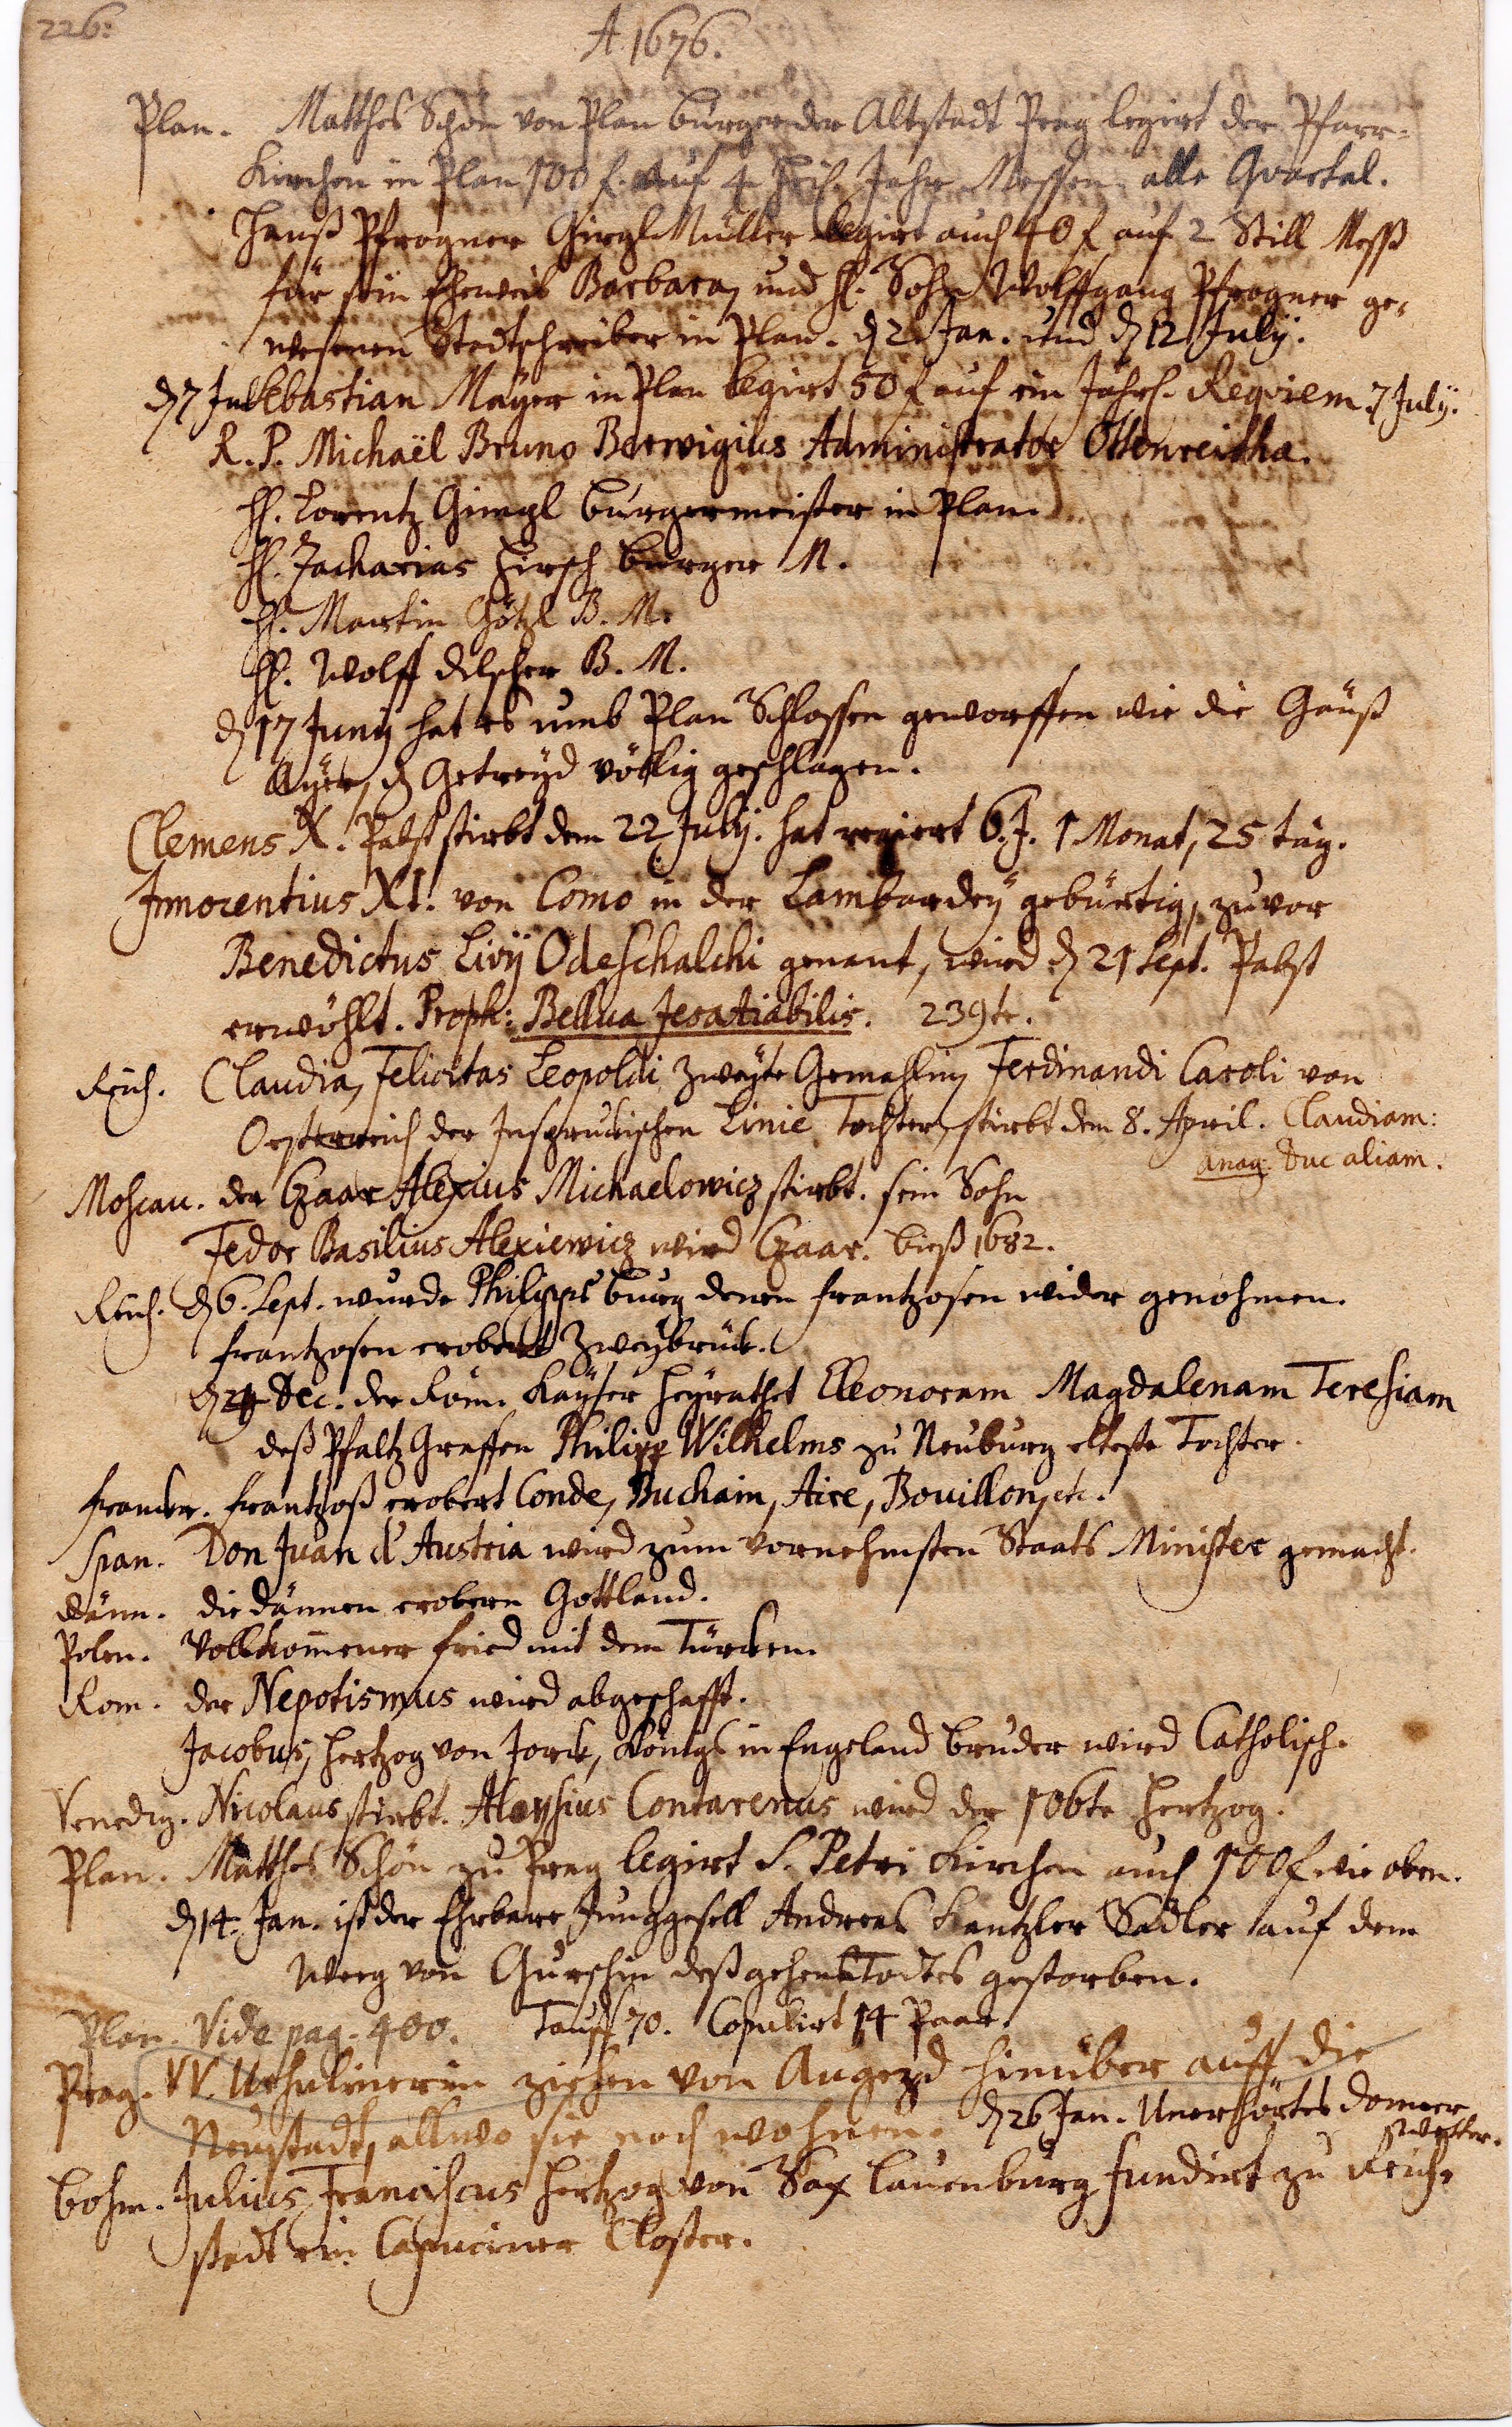 226.
A. 1676.
Plan. Matthes Schön von Plan burger der Altstadt Prag legirt der Pfarr-
Kirchen in Plan 100 f. auf 4 Jahr Messen alle Quartal.
Hanß Pfrogner Girgl Müller legirt auch 40 f auf 2 Still Meß
für sein Eheweib Barbara, und H. Sohn Wolffgang Pfrogner ge-
wesenen Stadtschreiber in Plan. d 2. Jan. und d 12 July.
d 7 Jul Sebastian Mayer in Plan legirt 50 f auf ein Jährl. Requiem. 7 July.
R. P. Michaël Bruno Berwigius Administrator Ottenreitha.
H. Lorentz Gimgl burgermeister in Plan.
H. Zacharias Hirsch burger M.
H. Martin Götzl B. M.
H. Wolff Dilscher B. M.
d 17 Junij hat es umb Plan Schlossen geworffen wie die Gänß
Ayer, d Getreyd völlig geschlagen.
Clemens X. Pabst stirbt dem 22 July. hat regiert 6. J. 1 Monat, 25 täg.
Innocentius XI. von Como in der Lambardey gebürtig, zuvor
Benedictus Livÿ Odeschalchi genant, wird d 21 Sept. Pabst
erwöhlt. Proph: Bellua Jesatiabilis. 239te.
Reich. Claudia, Felicitas Leopoldi Zweyte Gemahlin, Ferdinandi Caroli von
Oesterreich der Insprukischen Linie Tochter, stirbt dem 8. April. Claudiam:
anag. Duc aliam.
Moscau. der Czaar Alexius Michaelowicz stirbt. sein Sohn
Fedor Basilius Alexiewicz wird Czaar. bieß 1682.
Reich. d 6. Sept. wurde Philippsburg denen frantzosen wider genohmen.
frantzosen erobert Zweybrück.
d 24 Dec. der Röm. Kayser heyrathet Eleonoram Magdalenam Teresiam
deß Pfaltz Graffen Philipp Wilhelms zu Neuburg elteste Tochter.
Frankr. Frantzoß erobert Conde, Buchain, Aire, Bouillon, etc.
Span. Don Juan d'Austria wird zum vornehmsten Staats Minister gemacht.
Dänn. die Dännen erobern Gottland.
Polen. Vollkom̅ener fried mit dem Türcken.
Rom. der Nepotismus wird abgeschafft.
Jacobus, Hertzog von Jorck, Königs in Engeland bruder wird Catholisch.
Venedig. Nicolaus stirbt. Aloysius Contarenus wird der 106te Hertzog.
Plan. Matthes Schön zu Prag legirt S. Petri Kirchen auch 100 f wie oben.
d 14. Jan. ist der Ehrbare Junggesell Andreas Kantzler Sadler auf dem
Weeg von deß gehen Todtes gestorben.
Plan. Vide pag. 400. Tauff 70. Copulirt 14 Paar.
Prag. VV. Ursulinerin ziehen von Augezd hinüber auff die
Neustadt, allwo sie noch wohnen. d 26 Jan. Unerhörtes Donner
wetter.
Bohm. Julius Franciscus Hertzog von Sax Lauenburg fundirt zu Reich-
stadt ein Capuciner Closter.